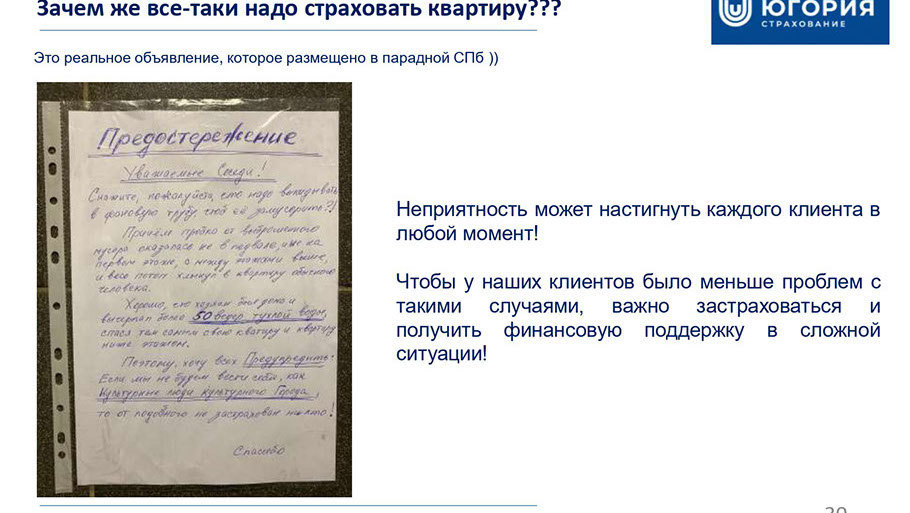 Зачем же все-таки надо страховать квартиру???
ЮГОРИЯ
СТРАХОВАНИЕ
Это реальное объявление, которое размещено в парадной СПб ))
Предостережение
Уважаемые Соседи!
Скажите, пожалуйста, что надо выкидывать
в фановую трубу, чтоб её замусорить?!
Причём пробка от выброшенного
мусора оказалась не в подвале, и не на
первом этаже, а между этажами выше,
и весь потоп хлынул в квартиру обычного
человека.
Хорошо, что хозяин был дома и
вычерпал более 50 ведер тухлой воды,
спася тем самым свою квартиру и квартиру
ниже этажом.
Поэтому, хочу всех Предупредить:
Если мы не будем вести себя, как
Культурные люди Культурного Города,
то от подобного не застрахован никто!
Спасибо
Неприятность может настигнуть каждого клиента в
любой момент!
Чтобы у наших клиентов было меньше проблем с
такими случаями, важно застраховаться и
получить финансовую поддержку в сложной
ситуации!